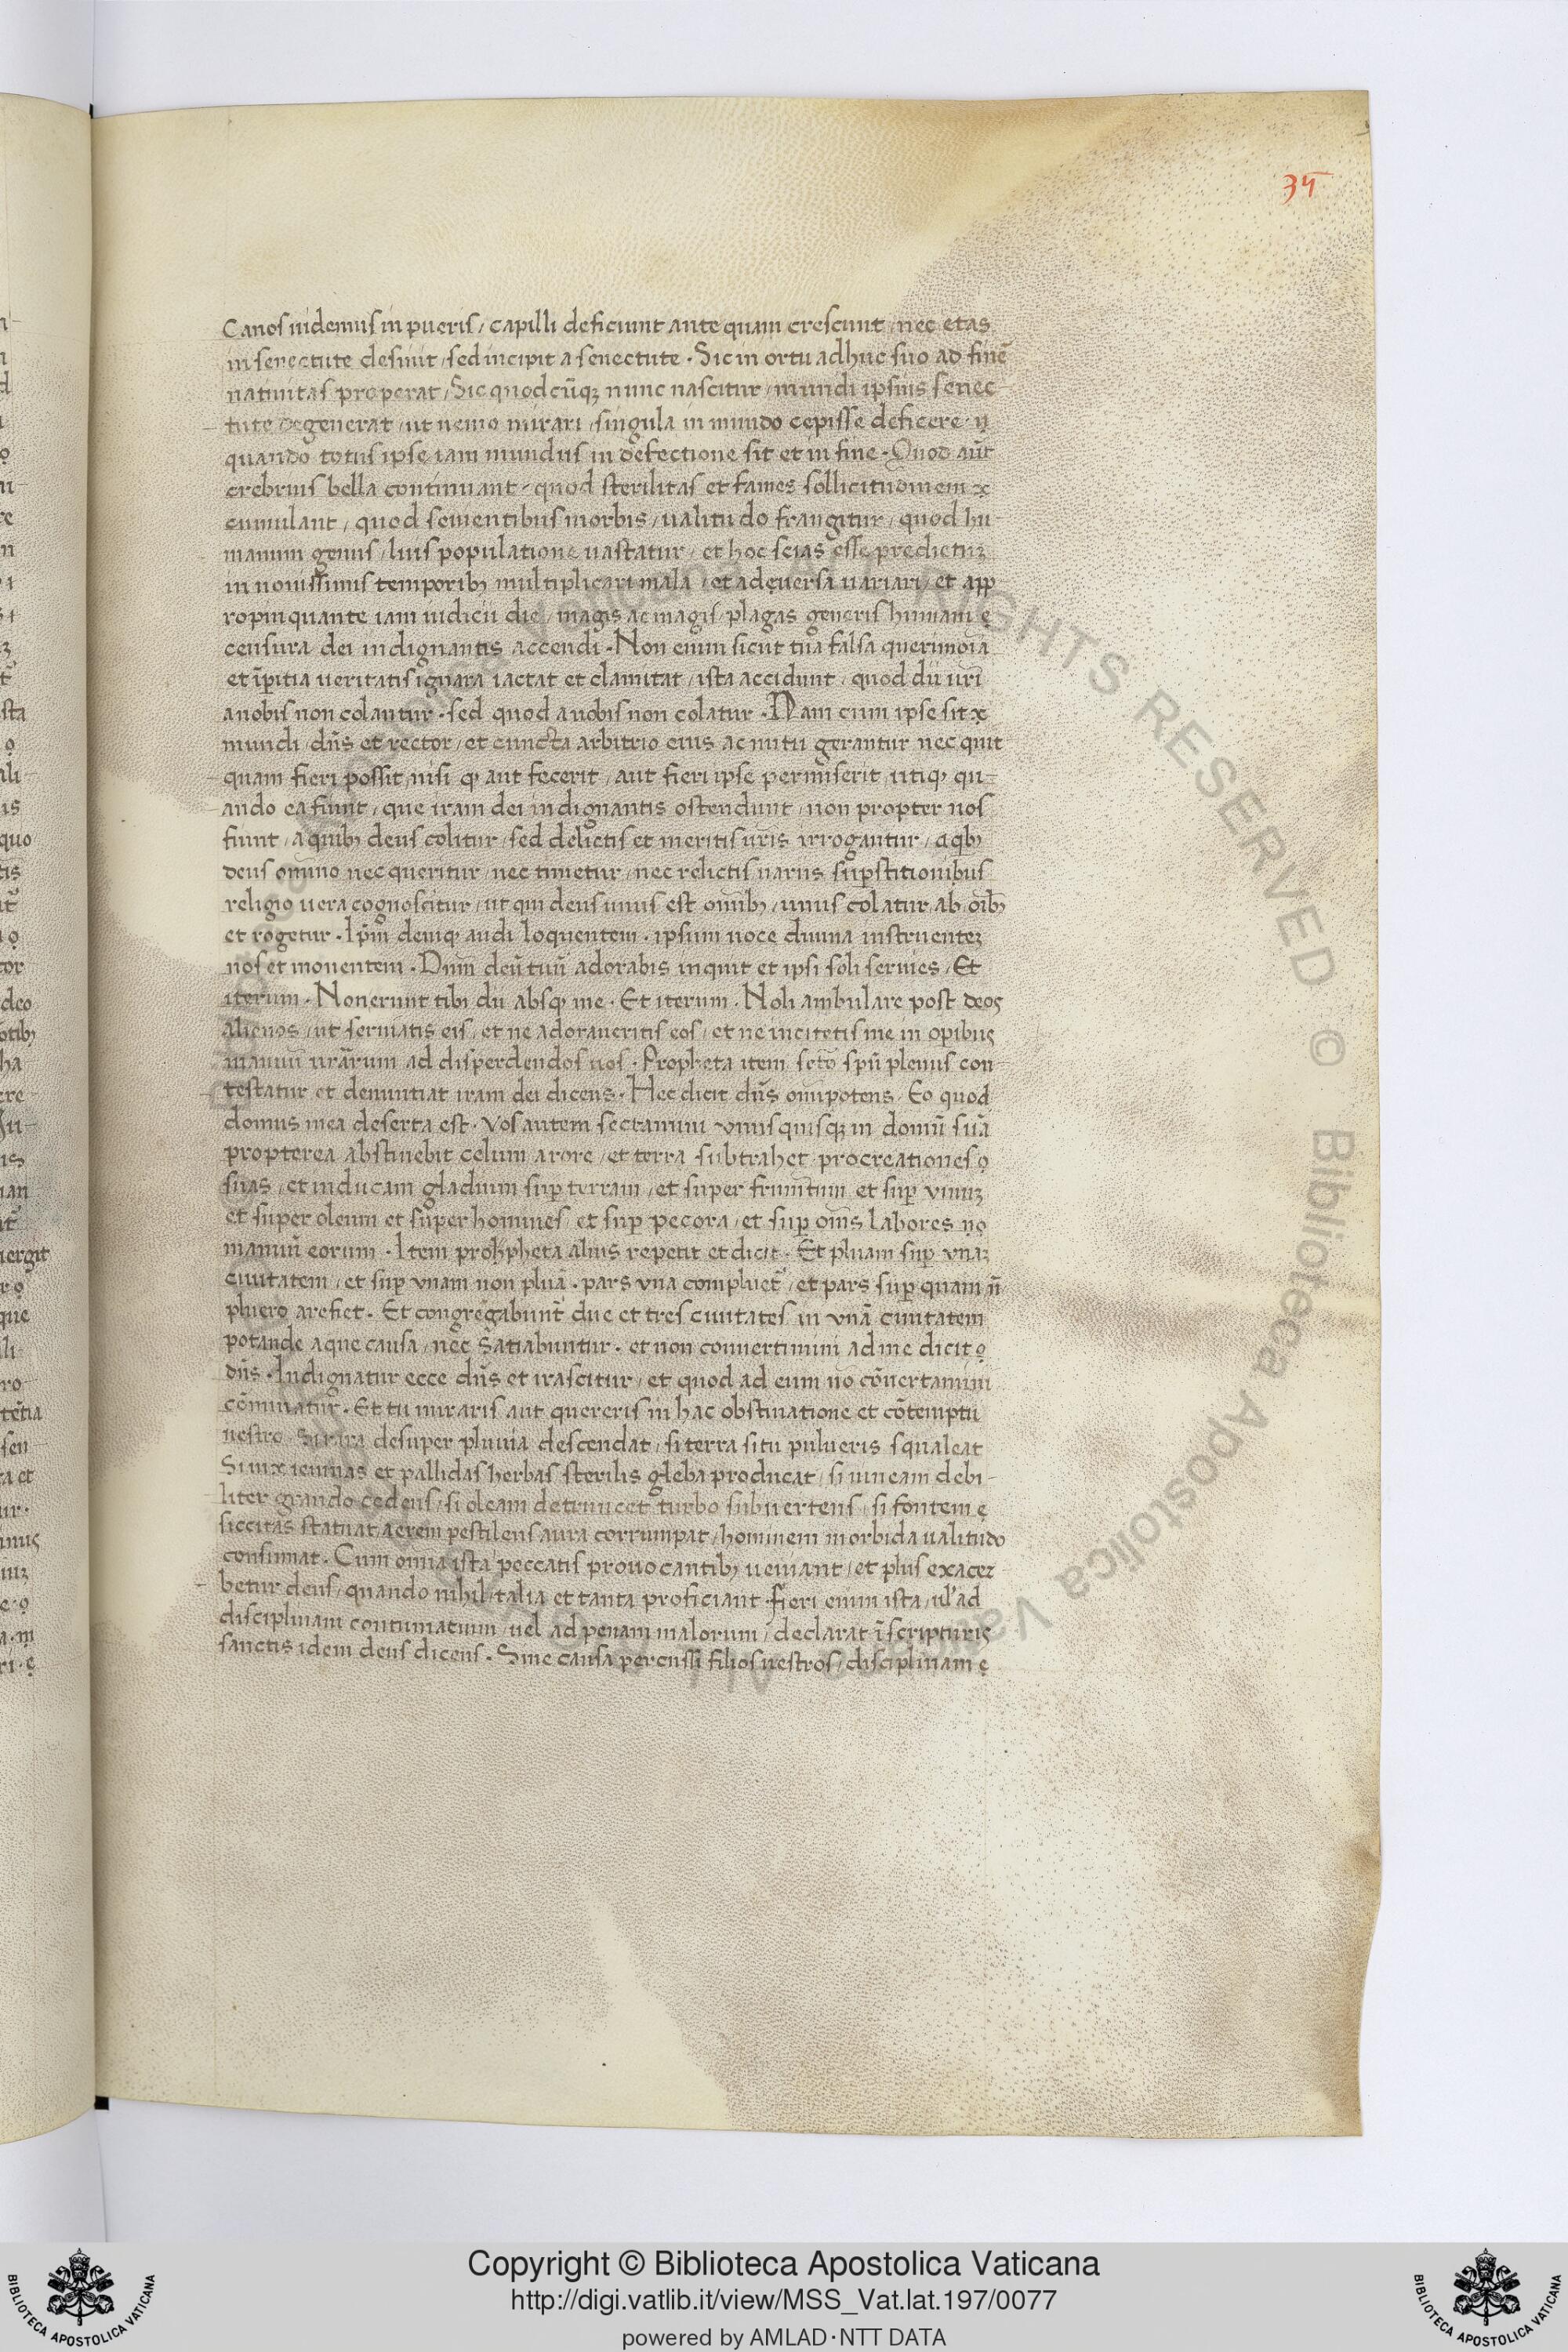 34
Canos uidemus in pueris / capilli deficiunt ante quam crescunt / nec etas
in senectute desinit / sed incipit a senectute . Sic in ortu adhuc suo ad finē
natiuitas properat / Sic quodcūqꝫ nunc nascitur / mundi ipsius senec
tute degenerat / ut nemo mirari / singula in mundo cepisse deficere .
quando totus ipse iam mundus in defectione sit et in fine . Quod aūt
crebrius bella continuant / quod sterilitas et fames sollicitudinem
cumulant / quod seuientibus morbis / ualitudo frangitur / quod hu-
manum genus / luis populatione uastatur / et hoc scias esse predictuꝫ
in nouissimis temporibꝫ multiplicari mala / et aduersa uariari / et app
ropinquante iam iudicii die / magis ac magis / plagas generis humani
censura dei indignantis accendi . Non enim sicut tua falsa querimoīa
et īpitia ueritatis ignara iactat et clamitat / ista accidunt / quod dii urī
a nobis non colantur . sed quod a uobis non colatur . Nam cum ipse sit
mundi / dn̄s et rector / et cuncta arbitrio eius ac nutu gerantur nec quit
quam fieri possit / nisi qꝫ aut fecerit / aut fieri ipse permiserit / utiqꝫ qu-
ando ea fiunt / que iram dei indignantis ostendunt / non propter nos
fiunt / a quibꝫ deus colitur / sed delictis et meritis ur̄is irrogantur / a qbꝫ
deus om̄ino nec queritur / nec timetur / nec relictis uariis sup̄stitionibus
religio uera cognoscitur / ut qui deus unus est om̄ibꝫ / unus colatur ab oībꝫ
et rogetur . Ip̄m deniqꝫ audi loquentem . ipsum uoce diuina instruenteꝫ
nos et monentem . Dnm̄ deū tuū adorabis inquit et ipsi soli seruies . Et
iterum . Non erunt tibi dii absqꝫ me . Et iterum . Noli ambulare post deos
alienos / ut seruiatis eis / et ne adoraueritis eos / et ne incitetis me in opibus
manuū urārum ad disperdendos uos . Propheta item sctō spū plenus con-
testatur et denuntiat iram dei dicens . Hec dicit dn̄s om̄ipotens . Eo quod
domus mea deserta est . Vos autem sectamini vnusquisqꝫ in domū suā
propterea abstinebit celum a rore / et terra subtrahet procreationes
suas / et inducam gladium sup̄ terram / et super frum̄tum et sup̄ vinuꝫ
et super oleum et super homines / et sup̄ pecora / et sup̄ om̄s labores
manuū eorum . Item prohpheta alius repetit et dicit . Et pluam sup̄ vnaꝫ
ciuitatem / et sup̄ vnam non pluā . pars vna compluet̄ / et pars sup̄ quam n̄
pluero arefiet . Et congregabunt̄ due et tres ciuitates in vnā ciuitatem
potande aque causa / nec satiabuntur . et non conuertimini ad me dicit
dn̄s . Indignatur ecce dn̄s et irascitur / et quod ad eum nō cōuertamini
cōminatur . Et tu miraris aut quereris in hac obstinatione et cōtemptu
uestro . Si rara desuper pluuia descendat / si terra situ pulueris squaleat
Si uix ieiunas et pallidas herbas sterilis gleba producat / si uineam debi-
liter grando cedens / si oleam detruncet turbo subuertens / si fontem
siccitas statuat / aerem pestilens aura corrumpat / hominem morbida ualitudo
consumat . Cum omīa ista peccatis prouocantibꝫ ueniant / et plus exacer
betur deus / quando nihil talia et tanta proficiant . fieri enim ista / ul' ad
disciplinam contumacium / uel ad penam malorum / declarat ī scripturis
sanctis idem deus dicens . Sine causa percussi filios uestros / disciplinam
Copyright © Biblioteca Apostolica Vaticana
http://digi.vatlib.it/view/MSS_Vat.lat.197/0077
powered by AMLAD·NTT DATA
BIBLIOTECA APOSTOLICA VATICANA
BIBLIOTECA APOSTOLICA VATICANA